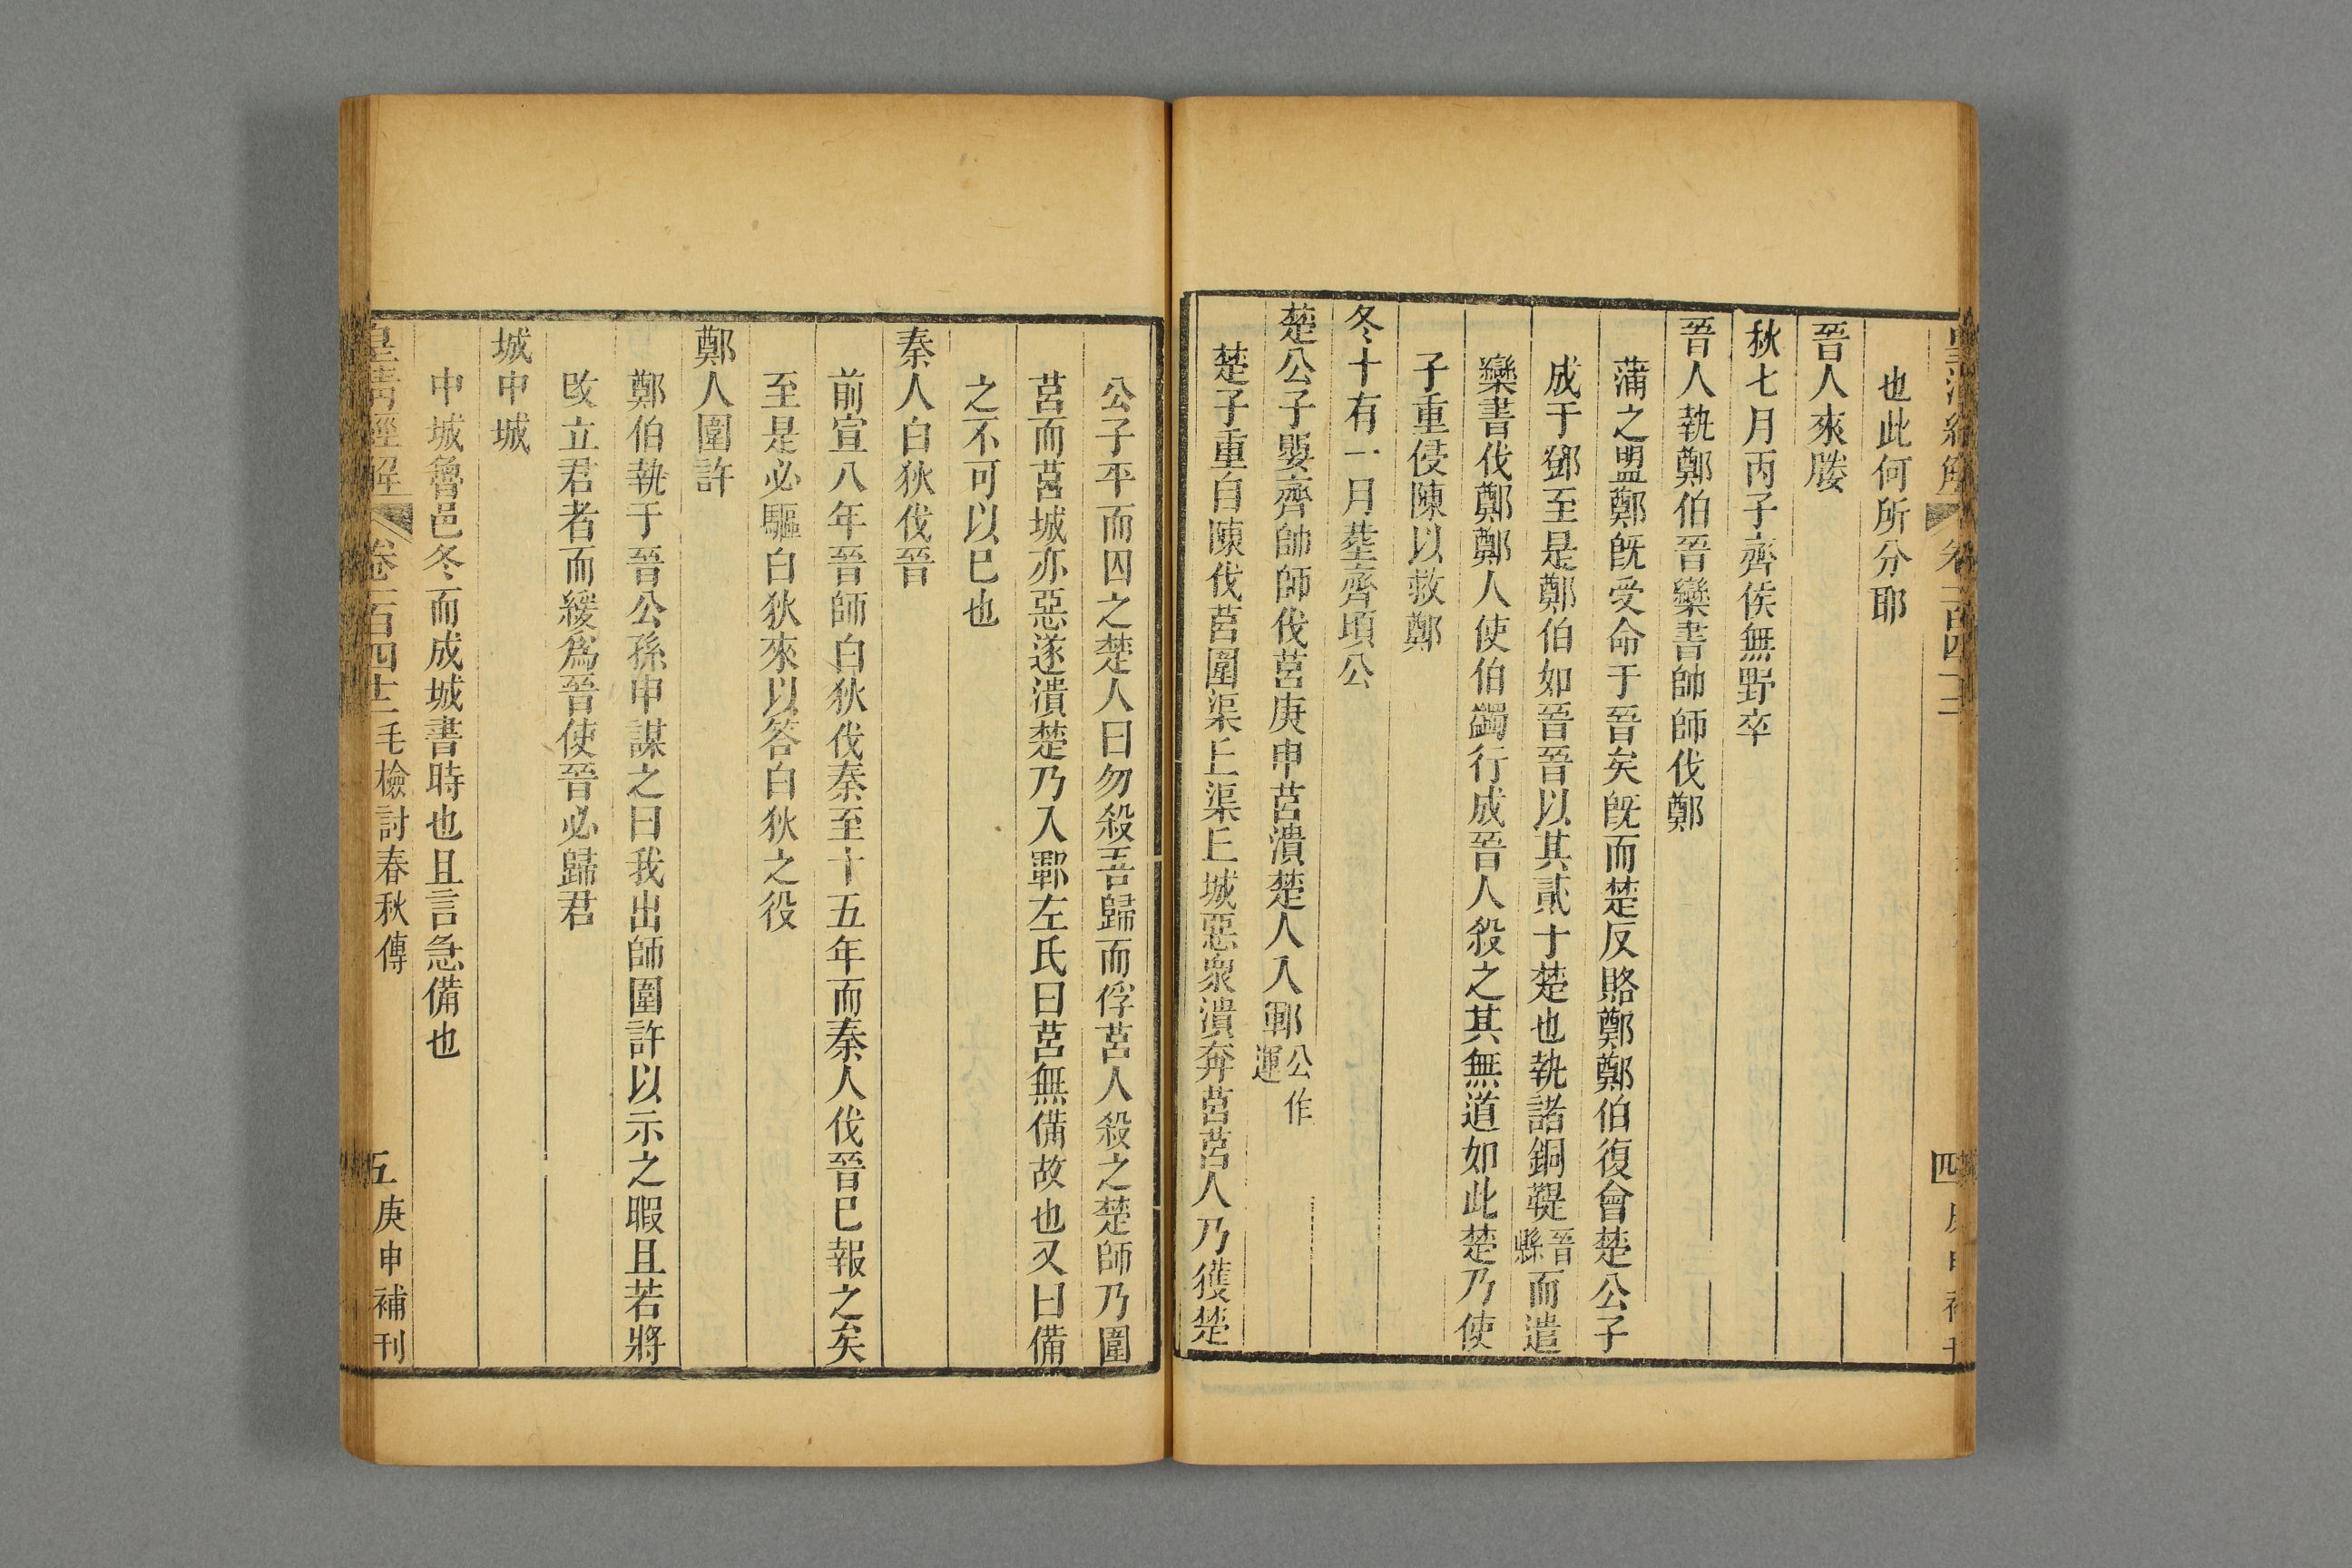 也此何所分耶
晉人來媵
秋七月丙子齊侯無野卒
晉人執鄭伯晉欒書帥師伐鄭
蒲之盟鄭旣受命于晉矣旣而楚反賂鄭鄭伯復會楚公子
成于鄧至是鄭伯如晉晉以其貳于楚也執諸銅鞮晉縣而遣
欒書伐鄭鄭人使伯蠲行成晉人殺之其無道如此楚乃使
子重侵陳以救鄭
冬十有一月塟齊頃公
楚公子嬰齊帥師伐莒庚申莒潰楚人入鄆公作運
楚子重自陳伐莒圍渠丘渠丘城惡衆潰奔莒莒人乃獲楚
公子平而囚之楚人曰勿殺吾歸而俘莒人殺之楚師乃圍
莒而莒城亦惡遂潰楚乃入鄆左氏曰莒無備故也又曰備
之不可以已也
秦人白狄伐晉
前宣八年晉師白狄伐秦至十五年而秦人伐晉已報之矣
至是必驅白狄來以答白狄之役
鄭人圍許
鄭伯執于晉公孫申謀之曰我出師圍許以示之暇且若將
攺立君者而緩爲晉使晉必歸君
城中城
中城魯邑冬而成城書時也且言急備也
皇清經解 卷一百四十二 毛檢討春秋傳 五 庚申補刊